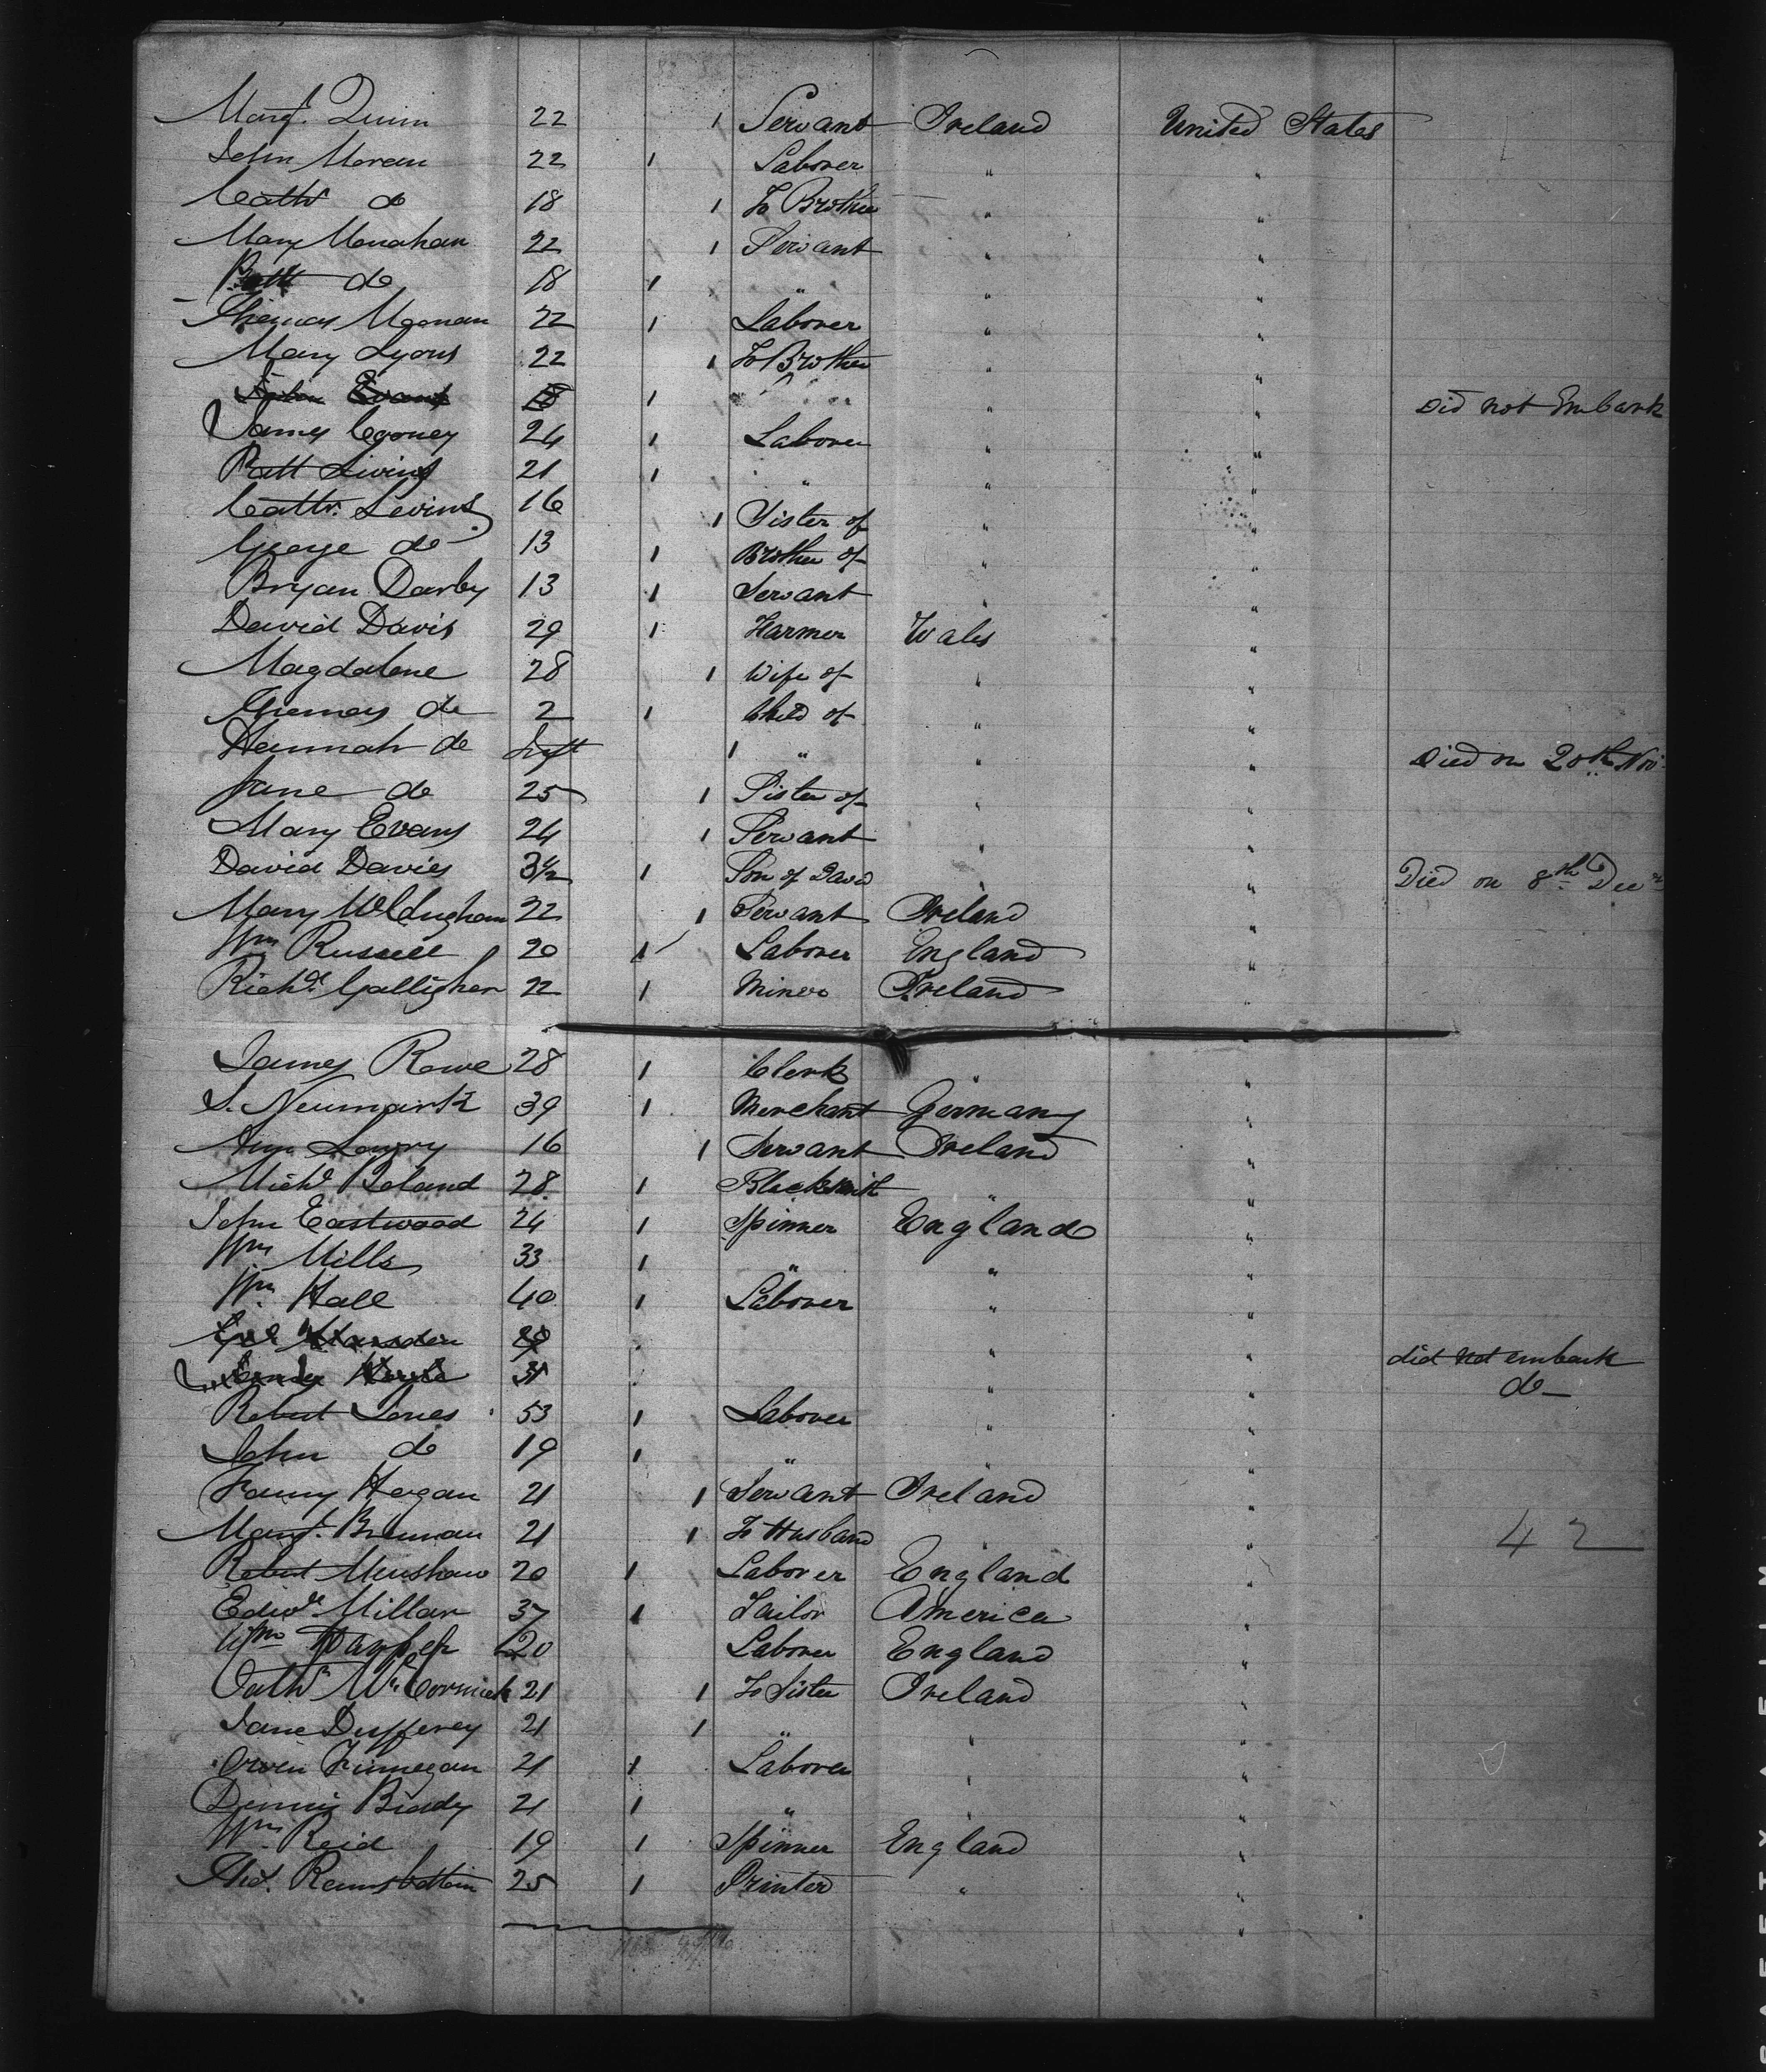 Margt. Quinn 22 1 Servant Ireland United States
John Moran 22 1 Laborer "  "
Cathr do 18 1 To Brother " "
Mary Monahan 22 1 Servant " "
Patt do 18 1 " " "
Thomas Moonan 22 1 Laborer " "
Mary Lyons 22 1 To Brother " "
John Evans 1 " " " Did not Embark
James Cooney 24 1 Laborer " "
Patt Livins 21 1 " " "
Cathr. Levins 16 1 Sister of " "
George do 13 1 Brother of " "
Bryan Darby 13 1 Servant " "
David Davis 29 1 Farmer Wales "
Magdalene 28 1 Wife of " "
Thomas do 2 1 Child of " "
Hannah do Inft 1 " " " Died on 20th Nov
Jane do 25 1 Sister of " "
Mary Evans 24 1 Servant " "
David Davies 3 1 Son of David " " Died on 8th Decr
Mary 22 1 Servant Ireland "
Wm Russell 20 1 Laborer England "
Richd. Galligher 22 1 Miner Ireland "
James Rowe 28 1 Clerk " "
S. Neumark 39 1 Merchant Germany "
Ann Lowry 16 1 Servant Ireland "
Michl Boland 28 1 Blacksmith " "
John Eastwood 24 1 Spinner England "
Wm Mills 33 1 " " "
Wm Hall 40 1 Laborer " "
Marsden 29 " " did not embark
31 " " do
Robert Jones 53 1 Laborer " "
John do 19 1 " " "
Fanny Hogan 21 1 Servant Ireland "
Margt. Brennan 21 1 To Husband " " 42
Robert Minshaw 20 1 Laborer England "
Edwd Millar 37 1 Tailor America "
Wm 20 Laborer England "
Cathr McCormick 21 1 To Sister Ireland "
Jane Dufferey 21 1 " " "
Owen Finnegan 21 1 Laborer " "
Dennis Brady 21 1 " " "
Wm Reid 19 1 Spinner England "
Ramsbottom 25 1 Printer " "